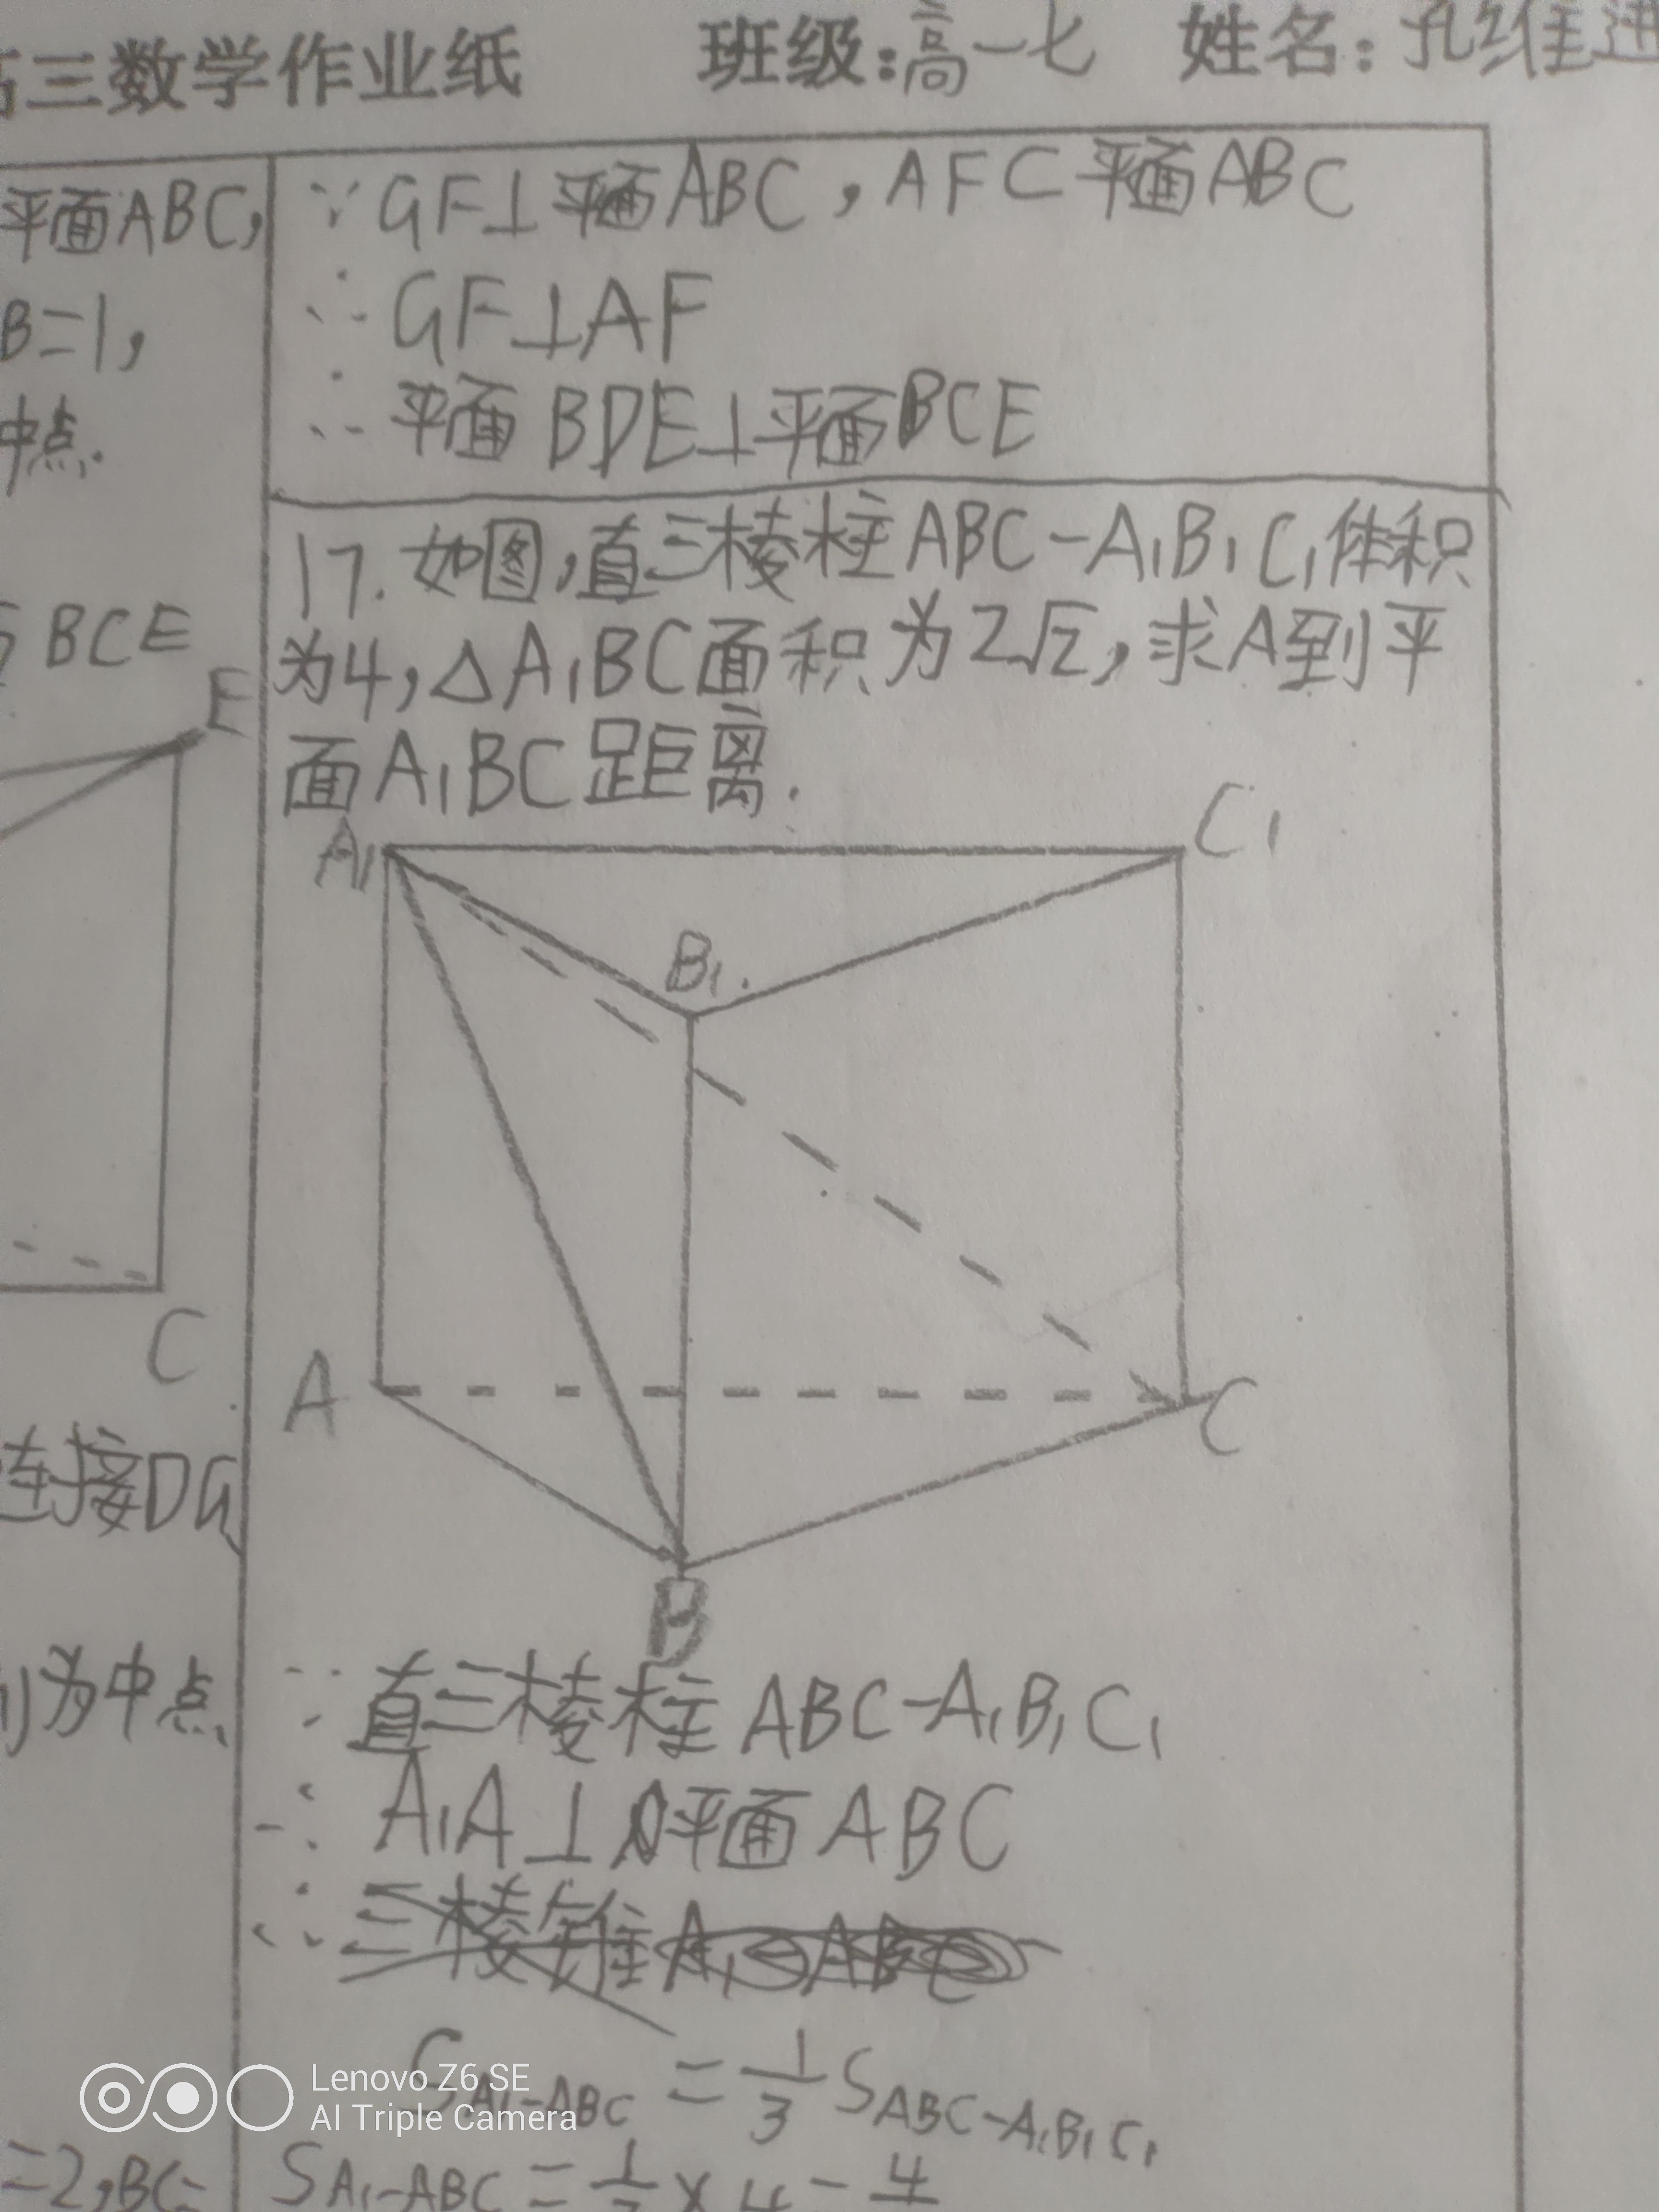 三数学作业纸 班级:高一七 姓名:孔维迅
平面ABC,
B=1,
中点.
BCE
E
C
连接DG
为中点
=2,BC=
∵GF⊥平面ABC,AF⊂平面ABC
∴GF⊥AF
∴平面BDE⊥平面BCE
17.如图,直三棱柱ABC-A₁B₁C₁体积
为4,△A₁BC面积为2√2,求A到平
面A₁BC距离.
A₁ C₁
B₁
A C
B
∵直三棱柱ABC-A₁B₁C₁
∴A₁A⊥平面ABC
∴三棱锥A₁-ABC
S_{A₁-ABC}=1/3 S_{ABC-A₁B₁C₁}
S_{A₁-ABC}=1/3×4=4
Lenovo Z6 SE
AI Triple Camera